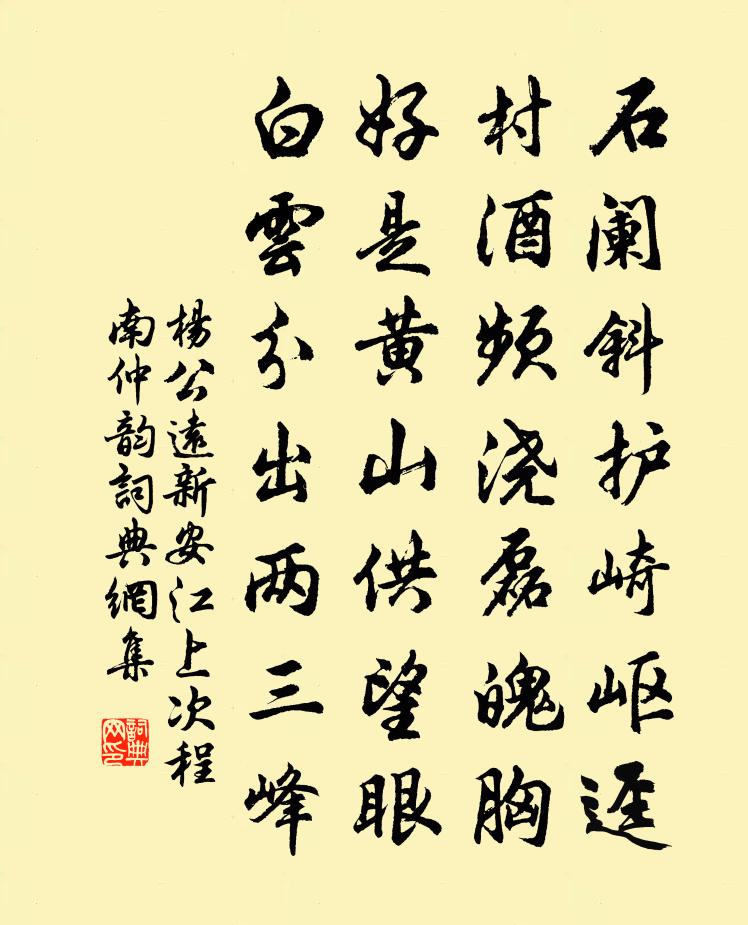 石阑斜护崎岖逕
村酒频浇磊魄胸
好是黄山供望眼
白雲分出两三峰
楊公遠新安江上次程
南仲韵詞典網集
詞典
网印